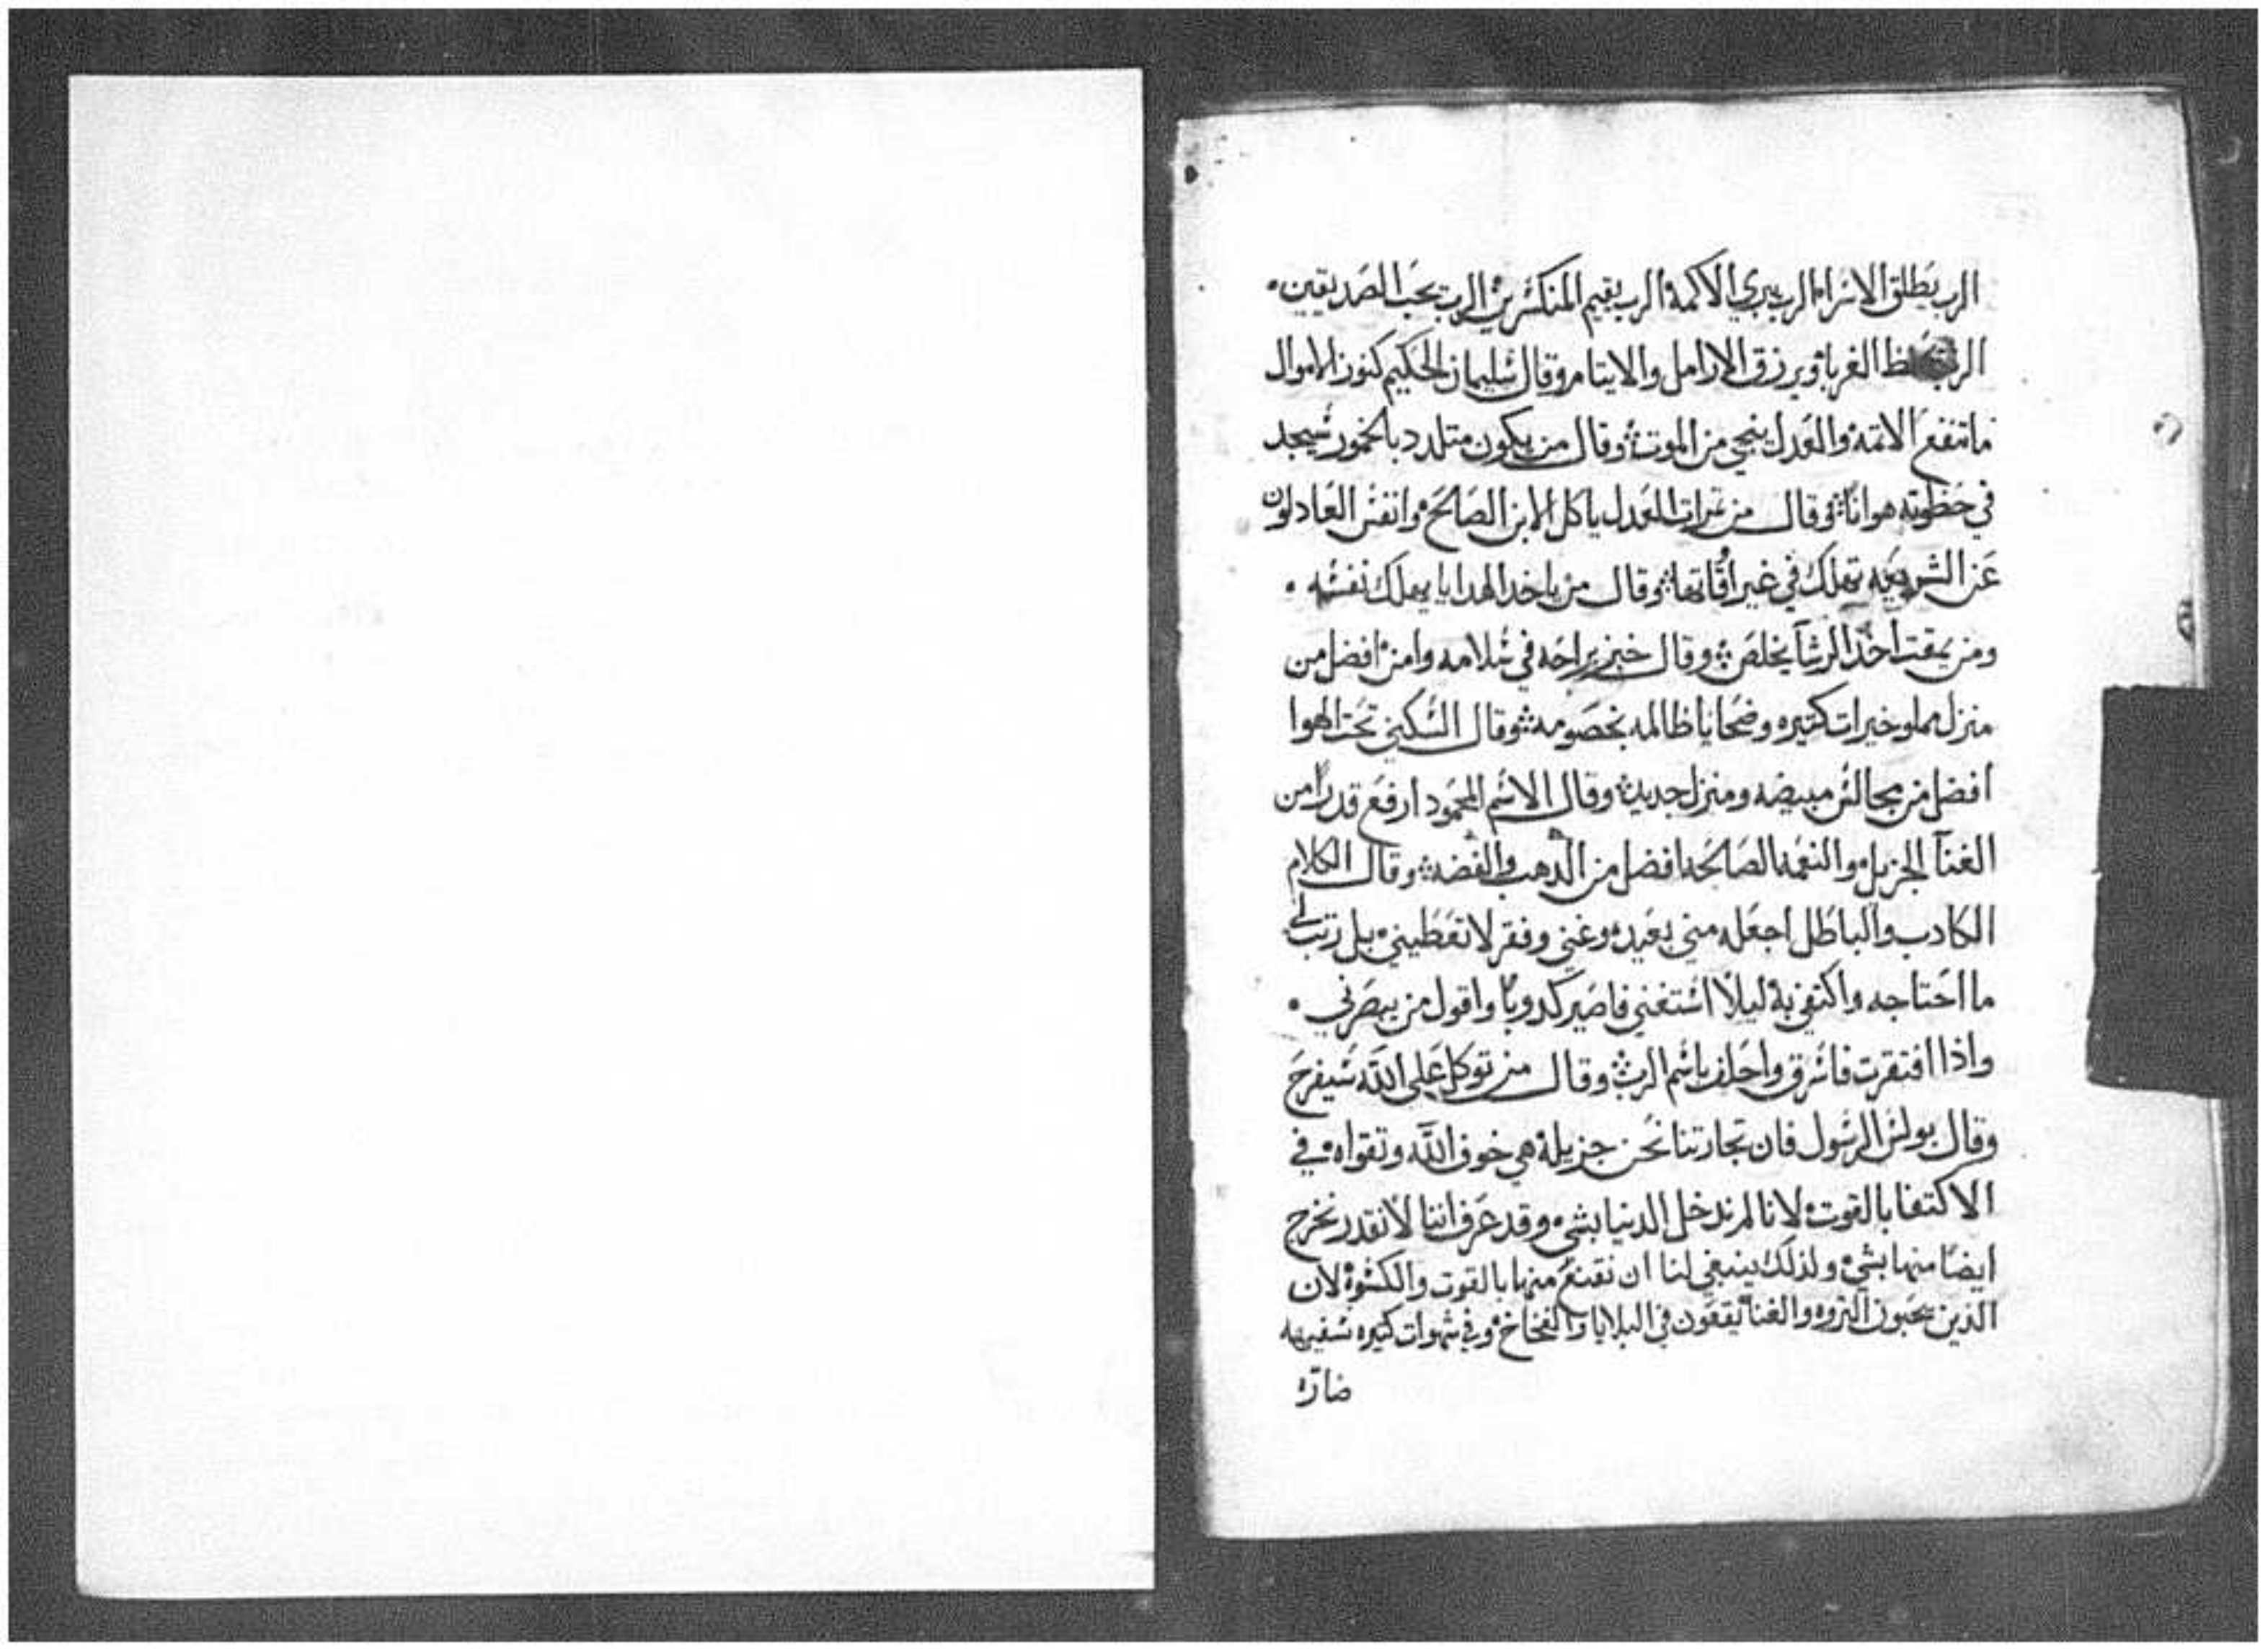 الرب يطلق الاسراء الرب يبري الاكمه الرب يقيم المنكسرين الرب يحب الصديقين.
الرب يحفظ الغرباء ويرزق الارامل والايتام وقال سليمان الحكيم كنوز الاموال
ماتنفع الاتمه والعدل ينجي من الموت وقال من يكون متلدد بالخمور سيجد
في حظوته هوانًا وقال من تمرات العدل ياكل الابن الصالح وانفس العادلون
عن الشريعه تهلك في غير اوقاتها وقال من ياخد الهدايا يهلك نفسه.
ومن يمقت اخذ الرشا يخلص وقال خبز براحه في سلامه وامن افضل من
منزل مملو خيرات كتيره وضحايا ظالمه بخصومه وقال السكني تحت الهوا
افضل من مجالس مبيضه ومنزل جديد وقال الاسم المحمود ارفع قدرًا من
الغنا الجزيل والنعمه الصالحه افضل من الدهب والفضه وقال الكلام
الكادب والباطل اجعله مني بعيد وغني وفقر لا تعطيني بل رتب لي
ما احتاجه واكتفي به ليلا استغني فاصير كدوبا واقول من يبصرني.
واذا افتقرت فاسرق واحلف باسم الرب وقال من توكل علي الله سيفرح
وقال بولس الرسول فان تجارتنا نحن جزيله هي خوف الله وتقواه في
الاكتفا بالقوت لانا لم ندخل الدنيا بشي وقد عرف اننا لا نقدر نخرج
ايضا منها بشي ولذلك ينبغي لنا ان نقنع منها بالقوت والكسوه لان
الذين يحبون التروه والغنا يقعون في البلايا والفخاخ وفي شهوات كتيره سفيهه
ضاره